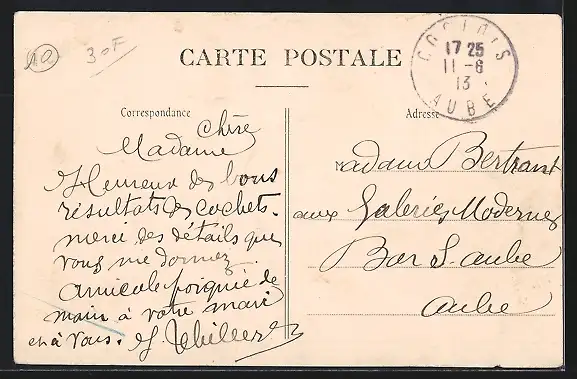 10
30F
CARTE POSTALE
COCLOIS
17 25
11 - 6
13
AUBE
Correspondance
Adresse
Chère
Madame
Heureux des bons
résultats des cochets.
merci des détails que
vous me donnez.
Amicale poignée de
main à votre mari
et à vous.
Madame Bertrant
aux Galeries Modernes
Bar S. aube
aube